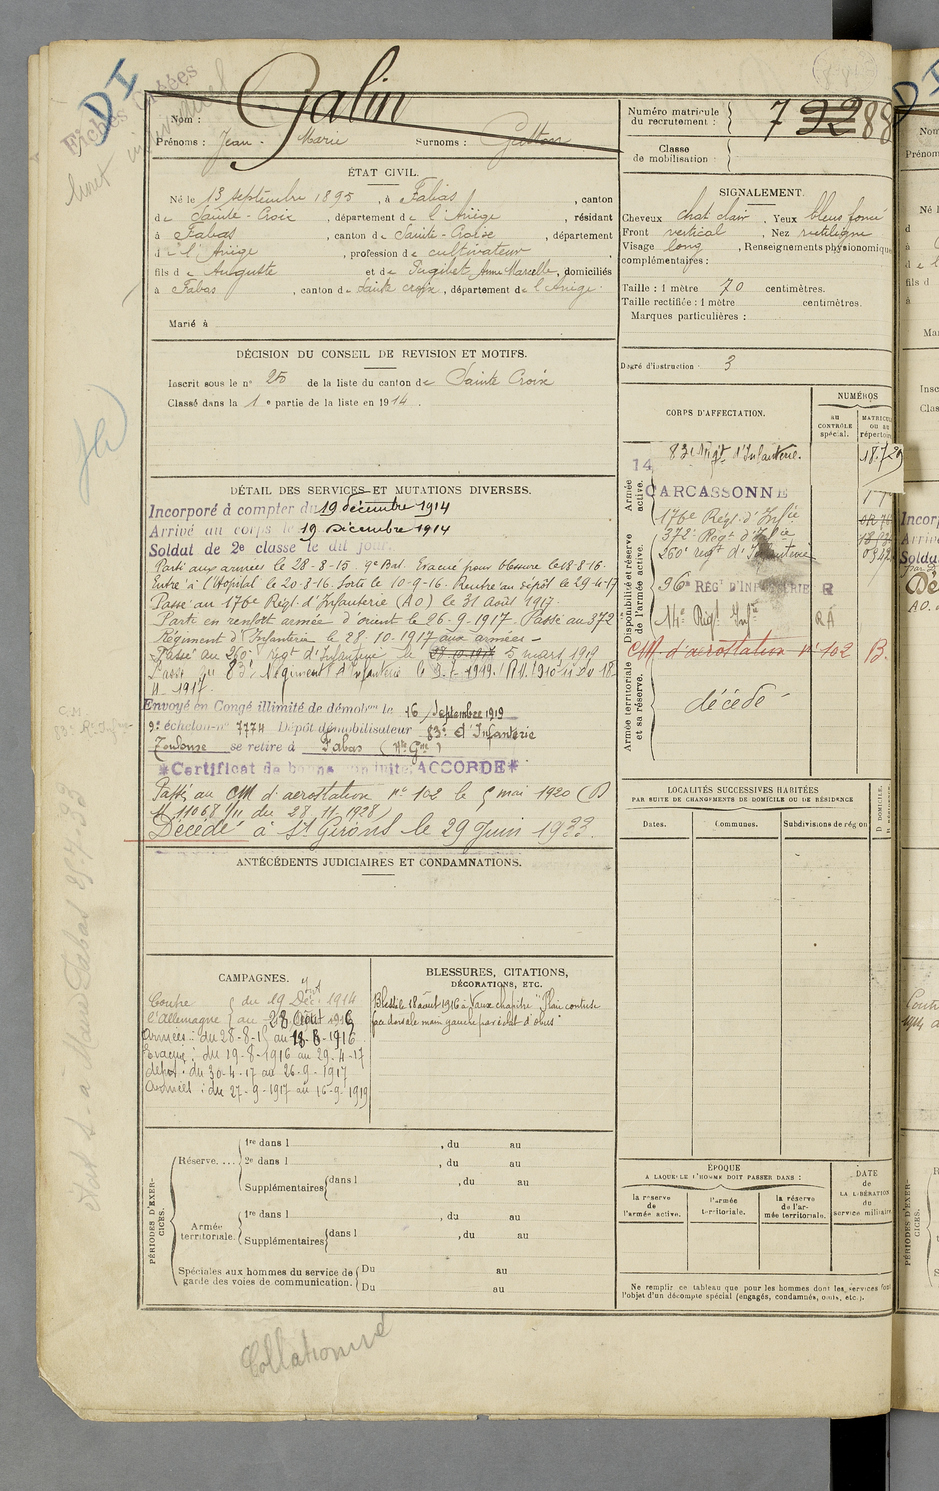 DI
Fichés
Nom : Galin
Prénoms : Jean - Marie Surnoms : Gaston
ÉTAT CIVIL.
Né le 13 septembre 1895, à Fabas, canton
de Sainte-Croix, département de l'Ariège, résidant
à Fabas, canton de Sainte-Croix, département
de l'Ariège, profession de cultivateur,
fils de Auguste et de Pugibet Anne Marcelle, domiciliés
à Fabas, canton de Sainte Croix, département de l'Ariège.
Marié à
DÉCISION DU CONSEIL DE REVISION ET MOTIFS.
Inscrit sous le n° 25 de la liste du canton de Sainte Croix
Classé dans la 1e partie de la liste en 1914.
DÉTAIL DES SERVICES ET MUTATIONS DIVERSES.
Incorporé à compter du 19 décembre 1914
Arrivé au corps le 19 Décembre 1914
Soldat de 2e classe le dit jour.
Parti aux armées le 28-8-15. 9e Bat. Evacué pour blessure le 18-8-16.
Entré à l'Hopital le 20-8-16. Sorti le 10-9-16. Rentré au dépôt le 29-4-17
Passé au 176e Régt. d'Infanterie (AO) le 31 Août 1917.
Parti en renfort armée d'orient le 26-9-1917. Passé au 372
Régiment d'Infanterie le 28.10-1917 aux armées -
Passé au 260e régt d'Infanterie le 5 mars 1919
Passé au 83e Régiment d'Infanterie le
11-1917.
Envoyé en Congé illimité de démobon le 16 Septembre 1919
9e échelon n° 7774 Dépôt démobilisateur 83e d'Infanterie
Toulouse se retire à Fabas (Hte Gne)
*Certificat de bonne conduite ACCORDÉ*
Passé au CM d'aerostation n° 102 le 5 mai 1920 (D
M 11068 1/11 du 28-11-1928)
Décédé à St Girons le 29 Juin 1933.
ANTÉCÉDENTS JUDICIAIRES ET CONDAMNATIONS.
CAMPAGNES.
Contre { du 19 Déc. 1914
l'Allemagne { au 28 Août 1916
Armées : du 28-8-15 au 18-8-1916
Evacué : du 19-8-1916 au 29-4-17
dépôt : du 30-4-17 au 26-9-1917
Armées : du 27-9-1917 au 16-9-1919
BLESSURES, CITATIONS,
DÉCORATIONS, ETC.
Blessé le 18 août 1916 à Vaux chapitre "Plaie contuse
face dorsale main gauche par éclat d'obus"
PÉRIODES D'EXERCICES.
Réserve....
1re dans l , du au
2e dans l , du au
Supplémentaires {dans l , du au
Armée territoriale.
1re dans l , du au
Supplémentaires {dans l , du au
Spéciales aux hommes du service de garde des voies de communication.
Du au
Du au
Collationné
Numéro matricule du recrutement : 7 92 88
Classe de mobilisation :
SIGNALEMENT.
Cheveux chat clair. Yeux bleus foncé
Front vertical, Nez rectiligne
Visage long, Renseignements physionomique
complémentaires :
Taille : 1 mètre 70 centimètres.
Taille rectifiée : 1 mètre centimètres.
Marques particulières :
Degré d'instruction 3
CORPS D'AFFECTATION.
NUMÉROS
au CONTRÔLE spécial.
MATRICULE OU au répertoire
Armée active.
83e Régt d'Infanterie.
14
CARCASSONNE
Disponibilité et réserve de l'armée active.
176e Régt. d'Infie
372e Régt d'Infie
260e régt d'Infanterie
96e RÉGT D'INFANTERIE R
14e Régt Infie RA
CM d'aerostation n° 102 B.
Armée territoriale et sa réserve.
décédé
LOCALITÉS SUCCESSIVES HABITÉES
PAR SUITE DE CHANGEMENTS DE DOMICILE OU DE RÉSIDENCE
Dates. Communes. Subdivisions de région
D. DOMICILE.
ÉPOQUE
A LAQUELLE L'HOMME DOIT PASSER DANS :
la réserve de l'armée active.
l'armée territoriale.
la réserve de l'armée territoriale.
DATE
de
LA LIBÉRATION
du
service militaire
Ne remplir ce tableau que pour les hommes dont les services font
l'objet d'un décompte spécial (engagés, condamnés, omis, etc.).